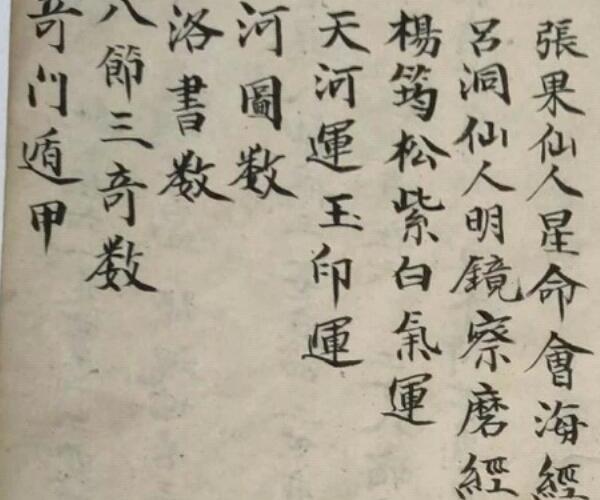 張果仙人星命會海經
呂洞仙人明鏡察磨經
楊筠松紫白氣運
天河運玉印運
河圖数
洛書数
八節三奇数
奇门遁甲